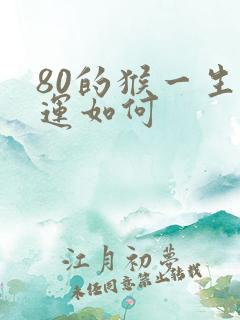 80的猴一生
運如何
江月初夢
未经同意禁止转载